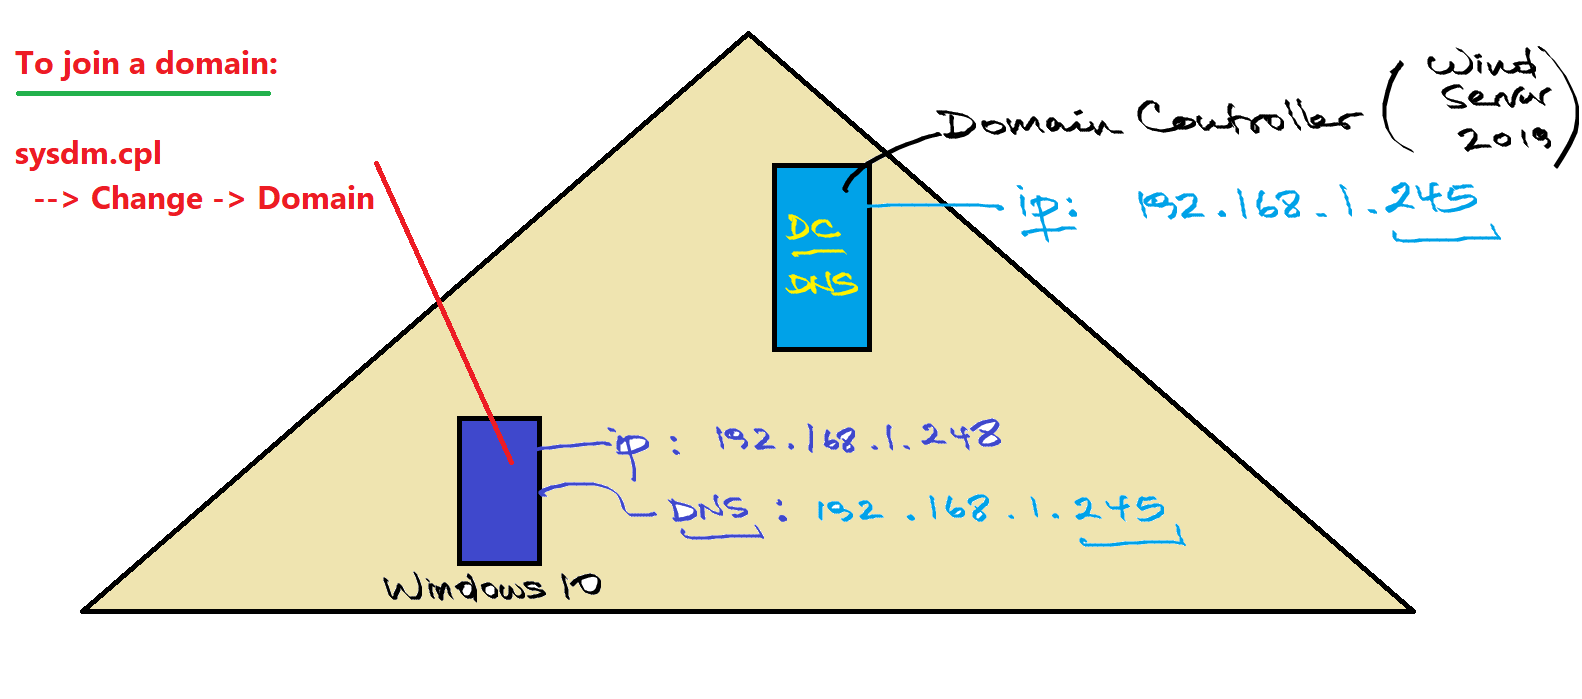 To join a domain:
sysdm.cpl
--> Change -> Domain
Domain Controller (Wind Server 2019)
ip: 192.168.1.245
DC
DNS
ip: 192.168.1.248
DNS: 192.168.1.245
Windows 10